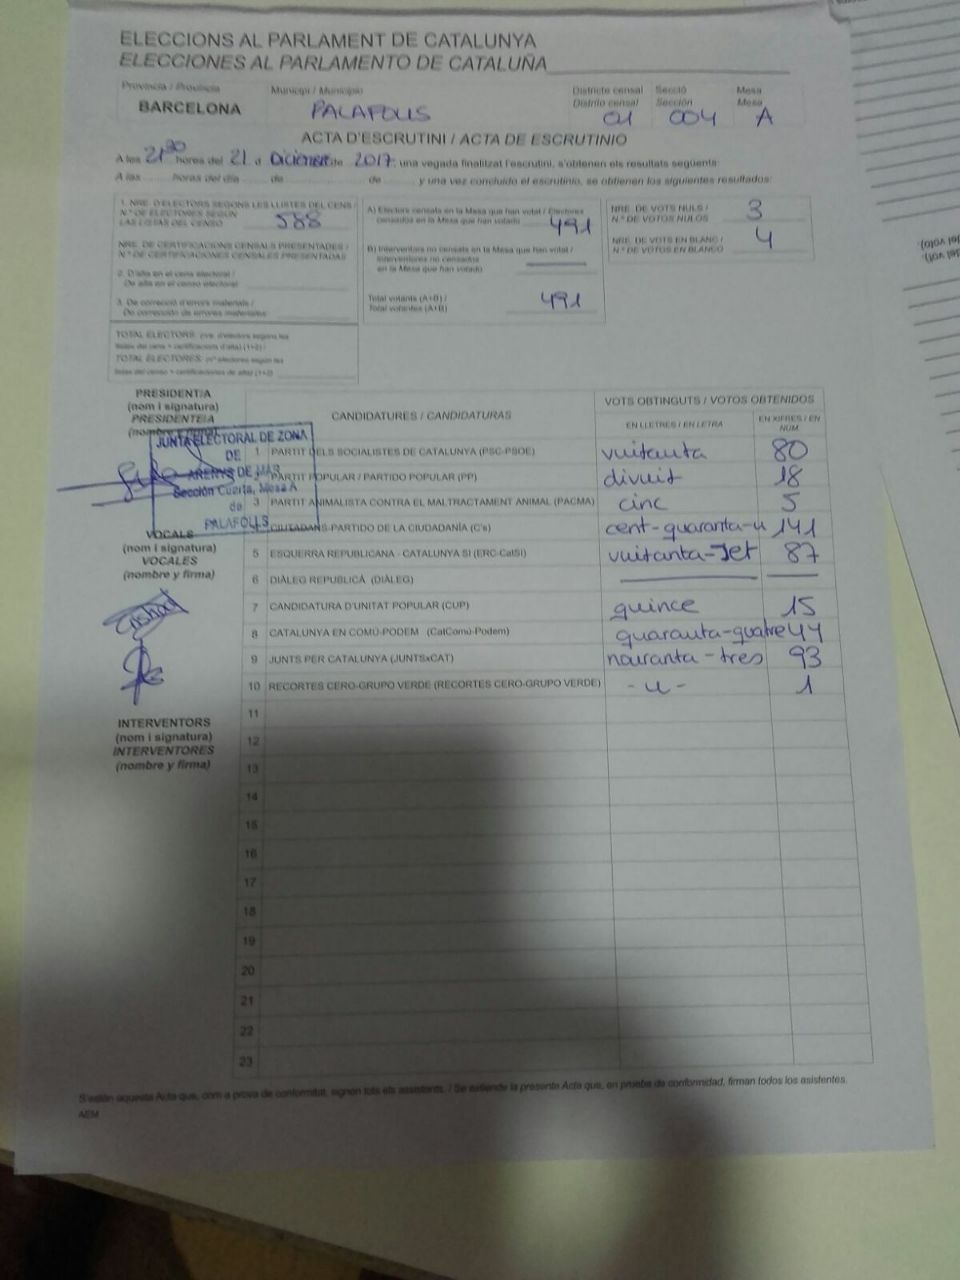 ELECCIONS AL PARLAMENT DE CATALUNYA
ELECCIONES AL PARLAMENTO DE CATALUÑA
Província / Provincia
Municipi / Municipio
Districte censal Secció Mesa
Distrito censal Sección Mesa
BARCELONA PALAFOLLS 01 004 A
ACTA D'ESCRUTINI / ACTA DE ESCRUTINIO
A les 21 30 hores del 21 d Diciembre de 2017, una vegada finalitzat l'escrutini, s'obtenen els resultats següents:
A las horas del día de de y una vez concluido el escrutinio, se obtienen los siguientes resultados:
1. NRE. D'ELECTORS SEGONS LES LLISTES DEL CENS /
N.º DE ELECTORES SEGÚN
LAS LISTAS DEL CENSO 588
NRE. DE CERTIFICACIONS CENSALS PRESENTADES /
N.º DE CERTIFICACIONES CENSALES PRESENTADAS
2. D'alta en el cens electoral /
De alta en el censo electoral
3. De correcció d'errors materials /
De corrección de errores materiales
TOTAL ELECTORS:
TOTAL ELECTORES:
A) Electors censats en la Mesa que han votat / Electores
censados en la Mesa que han votado 491
B) Interventors no censats en la Mesa que han votat /
Interventores no censados
en la Mesa que han votado
Total votants (A+B) /
Total votantes (A+B) 491
NRE. DE VOTS NULS /
N.º DE VOTOS NULOS 3
NRE. DE VOTS EN BLANC /
N.º DE VOTOS EN BLANCO 4
PRESIDENT/A
(nom i signatura)
PRESIDENTE/A
JUNTA ELECTORAL DE ZONA
DE
ARENYS DE MAR
Sección Cuarta, Mesa A
de
PALAFOLLS
VOCALS
(nom i signatura)
VOCALES
(nombre y firma)
INTERVENTORS
(nom i signatura)
INTERVENTORES
(nombre y firma)
CANDIDATURES / CANDIDATURAS
VOTS OBTINGUTS / VOTOS OBTENIDOS
EN LLETRES / EN LETRA
EN XIFRES / EN NÚM
1 PARTIT DELS SOCIALISTES DE CATALUNYA (PSC-PSOE) vuitanta 80
PARTIT POPULAR / PARTIDO POPULAR (PP) divuit 18
3 PARTIT ANIMALISTA CONTRA EL MALTRACTAMENT ANIMAL (PACMA) cinc 5
CIUTADANS-PARTIDO DE LA CIUDADANÍA (C's) cent-quaranta-u 141
5 ESQUERRA REPUBLICANA - CATALUNYA SÍ (ERC-CatSí) vuitanta-set 87
6 DIÀLEG REPUBLICÀ (DIÀLEG)
7 CANDIDATURA D'UNITAT POPULAR (CUP) quince 15
8 CATALUNYA EN COMÚ-PODEM (CatComú-Podem) quaranta-quatre 44
9 JUNTS PER CATALUNYA (JUNTSxCAT) nouranta-tres 93
10 RECORTES CERO-GRUPO VERDE (RECORTES CERO-GRUPO VERDE) -u- 1
11
12
13
14
15
16
17
18
19
20
21
22
23
S'estén aquesta Acta que, com a prova de conformitat, signen tots els assistents. / Se extiende la presente Acta que, en prueba de conformidad, firman todos los asistentes.
AEM